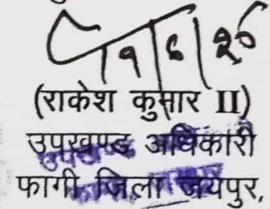 (राकेश कुमार II)
उपखण्ड अधिकारी
फागी जिला जयपुर,